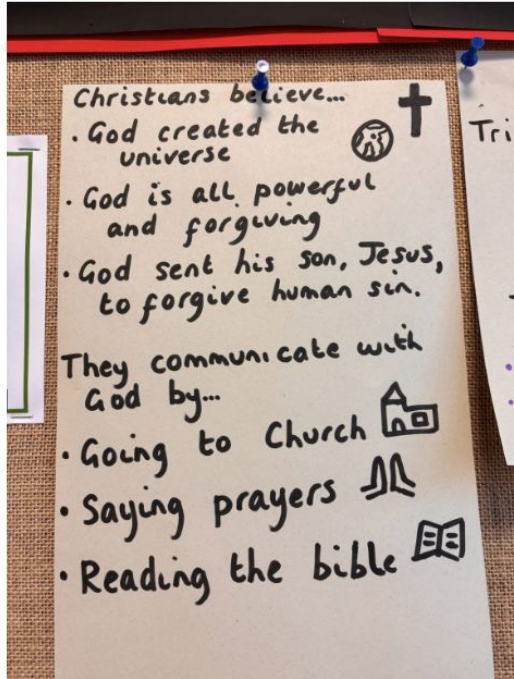 Christians believe...
· God created the
universe
· God is all powerful
and forgiving
· God sent his son, Jesus,
to forgive human sin.
They communicate with
God by...
· Going to Church
· Saying prayers
· Reading the bible
Tri